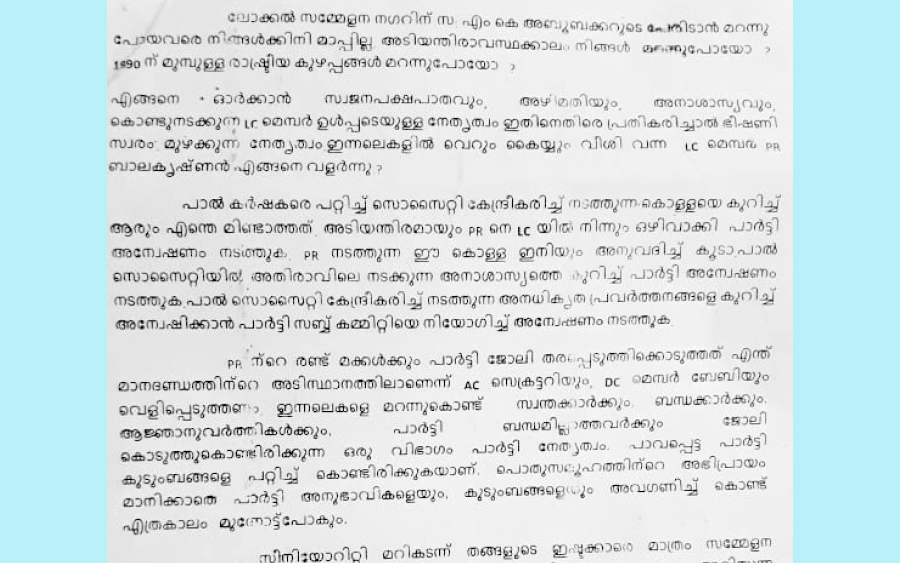 ലോക്കൽ സമ്മേളന നഗറിന് സ. എം കെ അബൂബക്കറുടെ മറന്നു
പോയവരെ നിങ്ങൾക്കിനി മാപ്പില്ല. അടിയന്തിരാവസ്ഥക്കാലം നിങ്ങൾ മറന്നുപോയോ ?
1990 ന് മുമ്പുള്ള രാഷ്ട്രീയ കുഴപ്പങ്ങൾ മറന്നുപോയോ ?
എങ്ങനെ ഓർക്കാൻ സ്വജനപക്ഷപാതവും, അഴിമതിയും, അനാശാസ്യവും,
കൊണ്ടുനടക്കുന്ന LC മെമ്പർ ഉൾപ്പടെയുള്ള നേതൃത്വം ഇതിനെതിരെ പ്രതികരിച്ചാൽ ഭീഷണി
സ്വരം മുഴക്കുന്ന നേതൃത്വം ഇന്നലെകളിൽ വെറും കൈയ്യും വീശി വന്ന LC മെമ്പർ PR
ബാലകൃഷ്ണൻ എങ്ങനെ വളർന്നു ?
പാൽ കർഷകരെ പറ്റിച്ച് സൊസൈറ്റി കേന്ദ്രീകരിച്ച് നടത്തുന്ന കൊള്ളയെ കുറിച്ച്
ആരും എന്തെ മിണ്ടാത്തത്. അടിയന്തിരമായും PR നെ LC യിൽ നിന്നും ഒഴിവാക്കി പാർട്ടി
അന്വേഷണം നടത്തുക. PR നടത്തുന്ന ഈ കൊള്ള ഇനിയും അനുവദിച്ച് കൂടാ.പാൽ
സൊസൈറ്റിയിൽ അതിരാവിലെ നടക്കുന്ന അനാശാസ്യത്തെ കുറിച്ച് പാർട്ടി അന്വേഷണം
നടത്തുക.പാൽ സൊസൈറ്റി കേന്ദ്രീകരിച്ച് നടത്തുന്ന അനധികൃത പ്രവർത്തനങ്ങളെ കുറിച്ച്
അന്വേഷിക്കാൻ പാർട്ടി സബ്ബ് കമ്മിറ്റിയെ നിയോഗിച്ച് അന്വേഷണം നടത്തുക.
PR ന്റെ രണ്ട് മക്കൾക്കും പാർട്ടി ജോലി തരപ്പെടുത്തിക്കൊടുത്തത് എന്ത്
മാനദണ്ഡത്തിന്റെ അടിസ്ഥാനത്തിലാണെന്ന് AC സെക്രട്ടറിയും, DC മെമ്പർ ബേബിയും
വെളിപ്പെടുത്തണം. ഇന്നലെകളെ മറന്നുകൊണ്ട് സ്വന്തക്കാർക്കും, ബന്ധക്കാർക്കും,
ആജ്ഞാനുവർത്തികൾക്കും, പാർട്ടി ബന്ധമില്ലാത്തവർക്കും ജോലി
കൊടുത്തുകൊണ്ടിരിക്കുന്ന ഒരു വിഭാഗം പാർട്ടി നേതൃത്വം. പാവപ്പെട്ട പാർട്ടി
കുടുംബങ്ങളെ പറ്റിച്ച് കൊണ്ടിരിക്കുകയാണ്. പൊതുസമൂഹത്തിന്റെ അഭിപ്രായം
മാനിക്കാതെ പാർട്ടി അനുഭാവികളെയും, കുടുംബങ്ങളെയും അവഗണിച്ച് കൊണ്ട്
എത്രകാലം മുന്നോട്ട്പോകും.
സീനിയോറിറ്റി മറികടന്ന് തങ്ങളുടെ ഇഷ്ടക്കാരെ മാത്രം സമ്മേളന